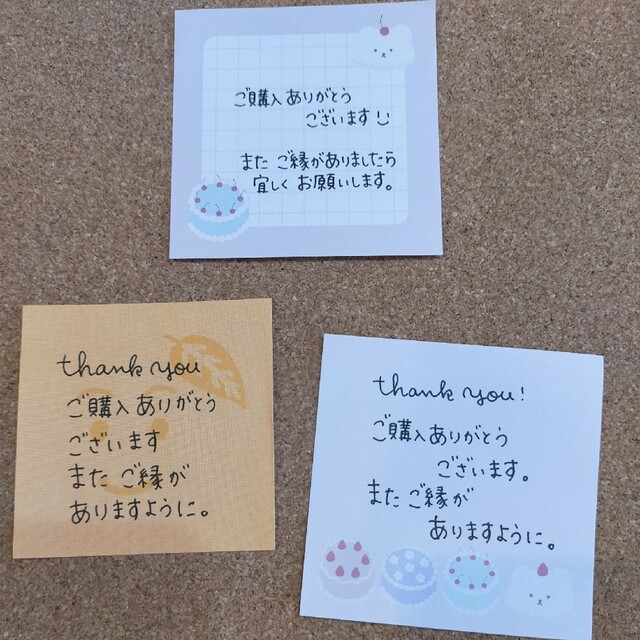 ご購入ありがとう
ございます
また ご縁がありましたら
宜しく お願いします。
thank you
ご購入ありがとう
ございます
また ご縁が
ありますように。
thank you!
ご購入ありがとう
ございます。
また ご縁が
ありますように。